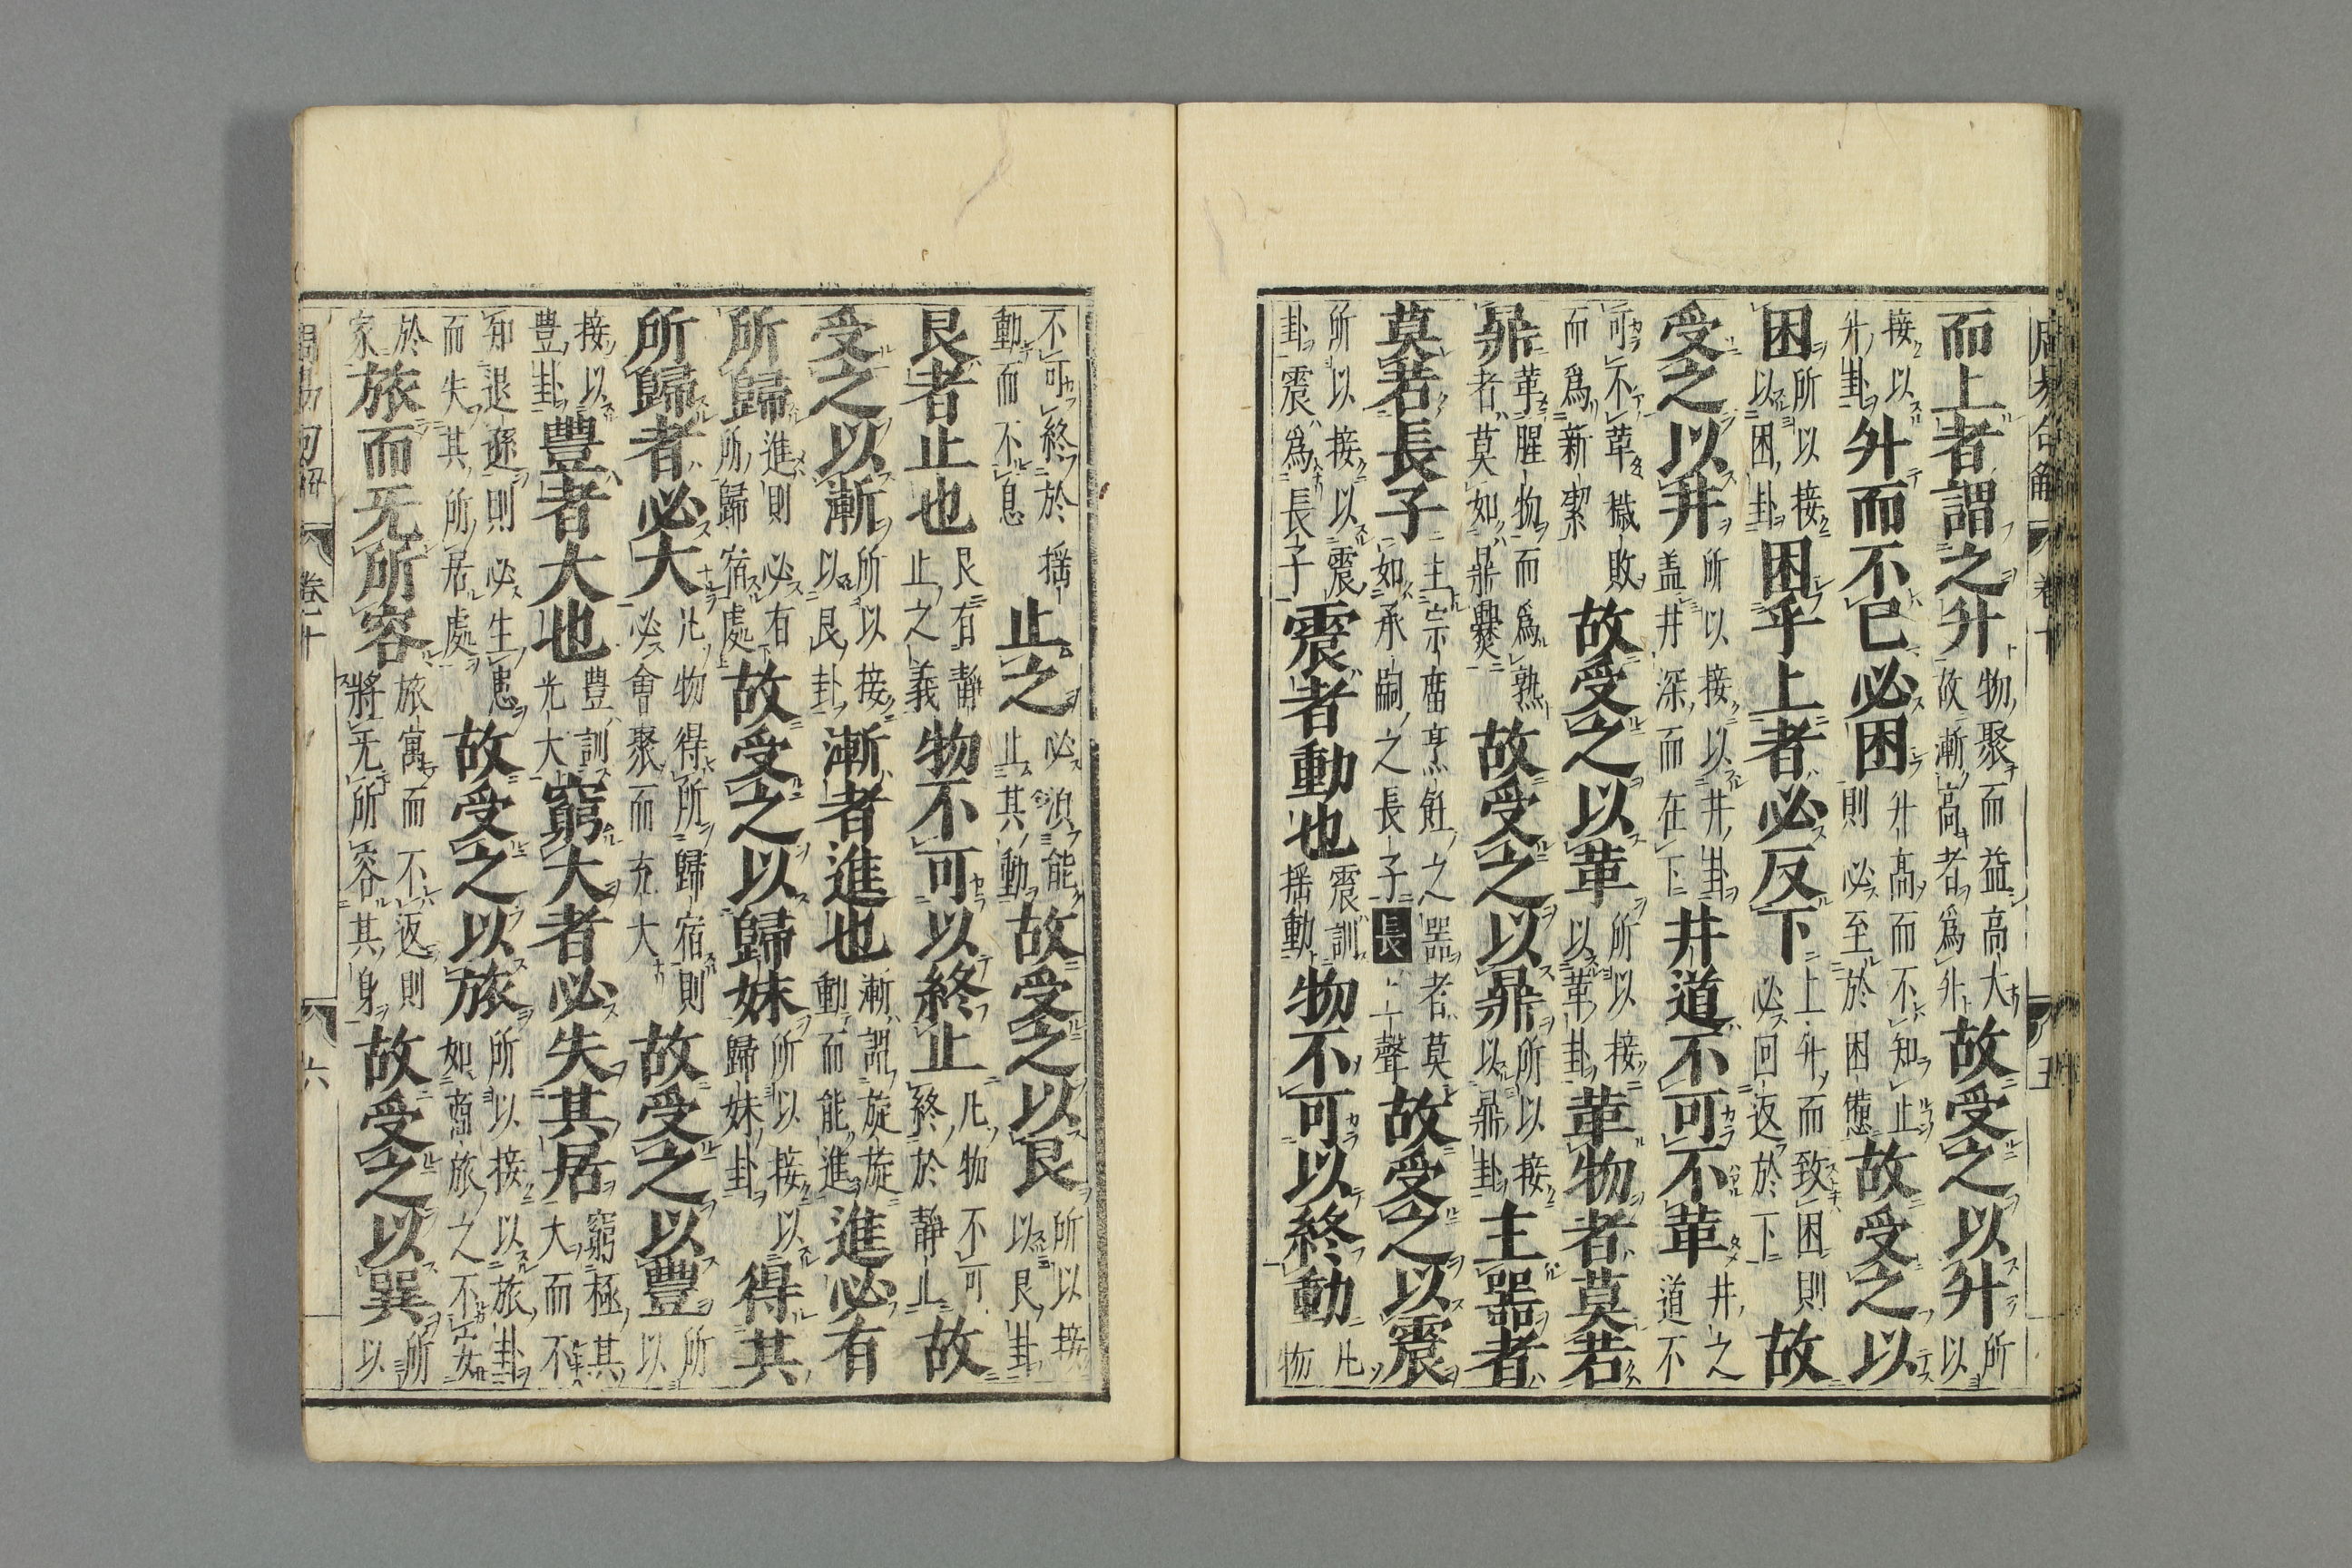 周易句解 卷十 五
而上者謂之升物聚而益高大故漸高者爲升故受之以升所以
接以升卦升而不已必困升高而不知止則必至於困憊故受之以
困所以接以困卦困乎上者必反下上升而致困則必回返於下故
受之以井所以接以井卦盖井深而在下井道不可不革井之道不
可不革穢敗而爲新潔故受之以革所以接以革卦革物者莫若
鼎革腥物而爲熟者莫如鼎爨故受之以鼎所以接以鼎卦主器者
莫若長子主宗庿烹飪之器者莫如承嗣之長子長上聲故受之以震
所以接以震卦震爲長子震者動也震訓揺動物不可以終動凢物
不可終於揺動而不息止之必湏能止其動故受之以艮所以接以艮卦
艮者止也艮有靜止之義物不可以終止凢物不可終於靜止故
受之以漸所以接以艮卦漸者進也漸謂旋旋動而能進進必有
所歸進則必有所歸宿處故受之以歸妹所以接以歸妹卦得其
所歸者必大凢物得所歸宿則必會聚而充大故受之以豊所以
接以豊卦豊者大也豊訓光大窮大者必失其居窮極其大而不
知退遜則必生患而失其所居處故受之以旅所以接以旅卦如商旅之不安
於家旅而无所容旅寓而不返則將无所容其身故受之以巽所以
周易句解 卷十 六